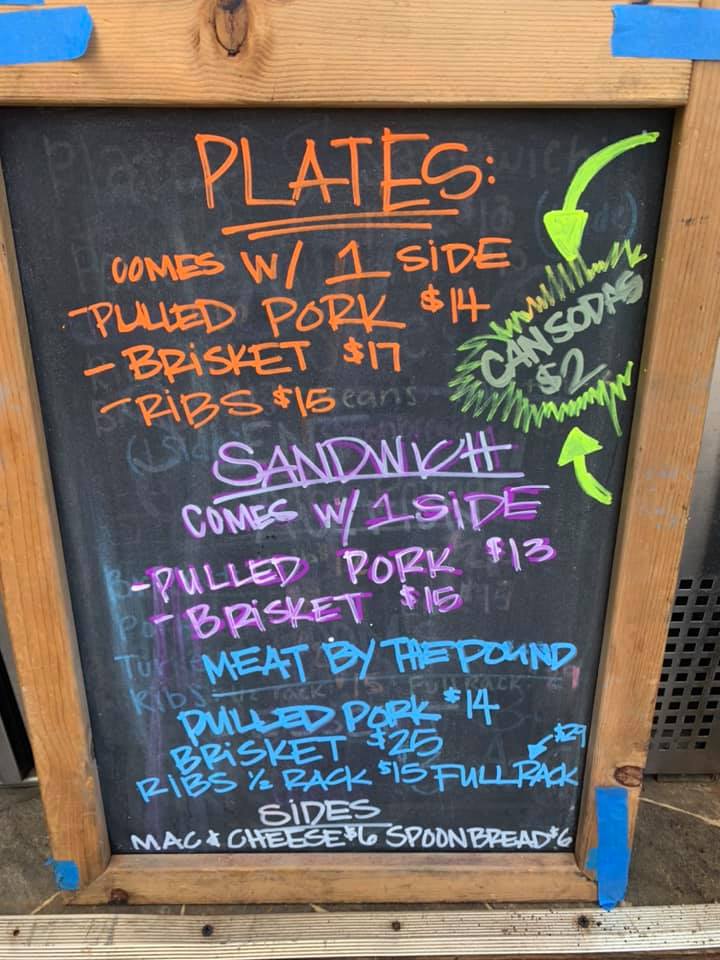 PLATES:
COMES W/ 1 SIDE
-PULLED PORK $14
- BRISKET $17
- RIBS $15
CAN SODAS
$2
SANDWICH
COMES W/ 1 SIDE
-PULLED PORK $13
- BRISKET $15
MEAT BY THE POUND
PULLED PORK $14
BRISKET $25
$29
RIBS ½ RACK $15 FULL RACK
SIDES
MAC & CHEESE $6 SPOONBREAD $6